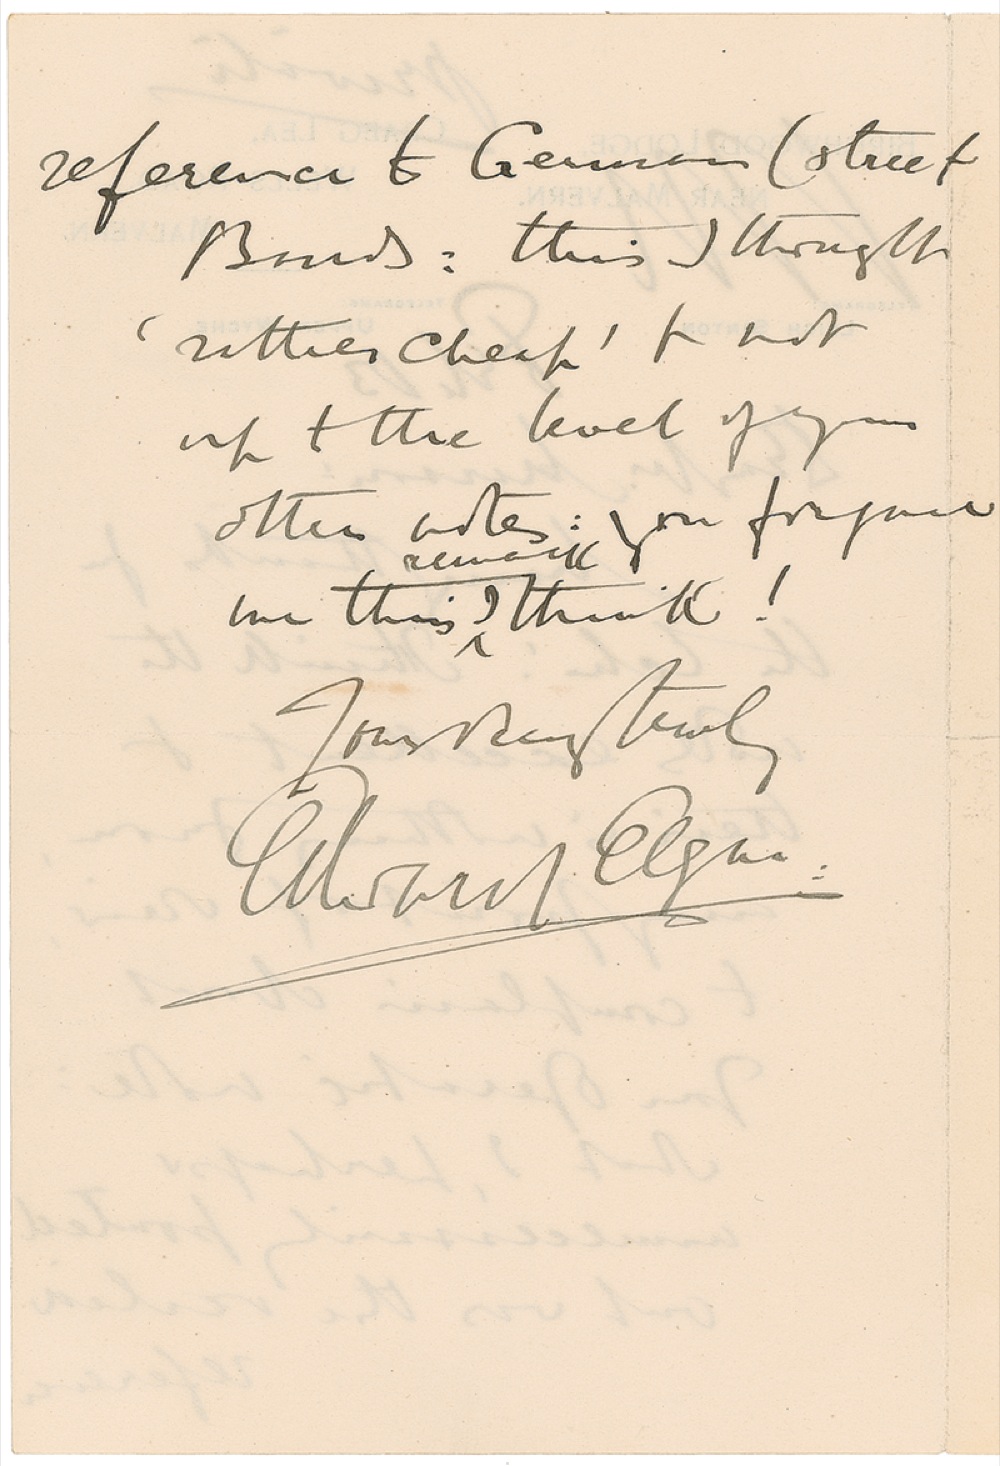 reference to German (street
Bands: this I thought
'rather cheap' & not
up to the level of your
other notes: you forgive
remark
me this I think!
Yours very truly
Edward Elgar.